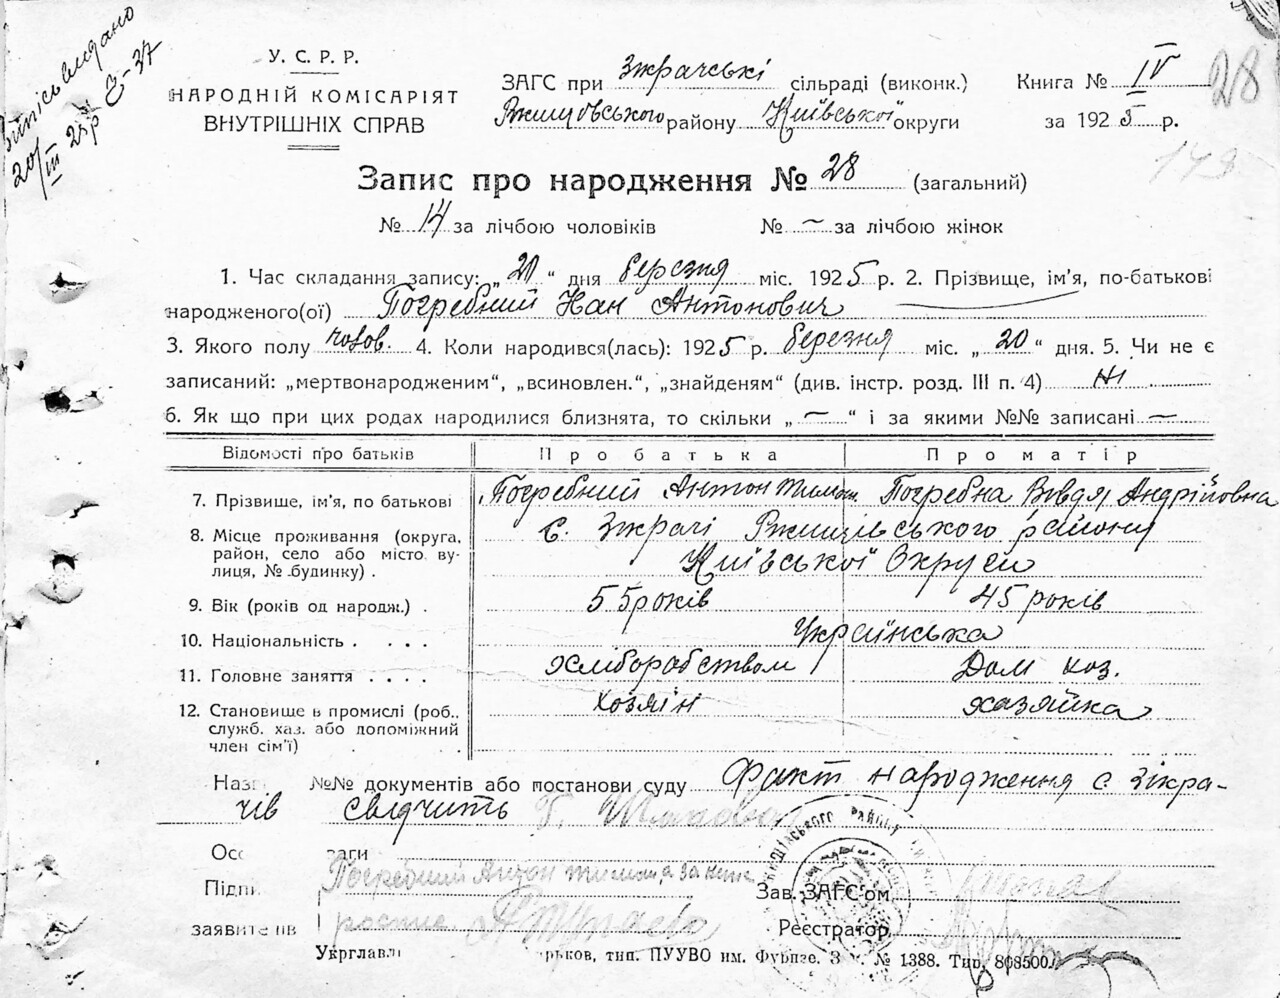 Випись видано
20/III 25р
З-37
У. С. Р. Р.
НАРОДНІЙ КОМІСАРІЯТ
ВНУТРІШНІХ СПРАВ
ЗАГС при Зікрачські сільраді (виконк.)
Ржищівського району Київської округи
Книга № IV
за 1925 р.
28
Запис про народження № 28 (загальний)
№ 14 за лічбою чоловіків № — за лічбою жінок
1. Час складання запису: „20“ дня березня міс. 1925 р. 2. Прізвище, ім'я, по-батькові
народженого(ої) Погребний Іван Антонович
3. Якого полу чолов. 4. Коли народився(лась): 1925 р. березня міс. „20“ дня. 5. Чи не є
записаний: „мертвонародженим“, „всиновлен.“, „знайденям“ (див. інстр. розд. III п. 4) Ні
6. Як що при цих родах народилися близнята, то скільки „—“ і за якими №№ записані —
Відомості про батьків Про батька Про матір
7. Прізвище, ім'я, по батькові Погребний Антон Тимош. Погребна Вівдя Андрійовна
8. Місце проживання (округа, район, село або місто, вулиця, № будинку) . с. Зікрачі Ржищівського району
Київської Округи
9. Вік (років од народж.) . 55 років 45 років
10. Національність . . . . Українська
11. Головне заняття . . . . Хліборобством Дом хоз.
12. Становище в промислі (роб., Хозяїн Хазяйка
служб. хаз. або допоміжний
член сім'ї)
Наз №№ документів або постанови суду Факт народження с Зікра-
чів свідчить
Осо ваги
Підпи Погребний Антон Тимош, а за него Зав. ЗАГС'ом
заявите ів роспис Реєстратор
Укрглавлі рьков, тип. ПУУВО им. Фрунзе. З № 1388. Тир. 808500